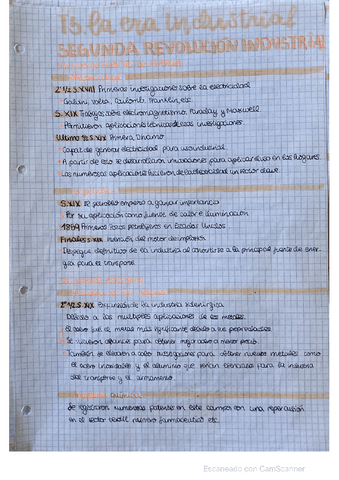 T5. la era industrial
SEGUNDA REVOLUCIÓN INDUSTRIAL
2ª ½ S. XVIII Primeras investigaciones sobre la electricidad
Galvani, Volta, Coulomb, Franklin, etc.
S. XIX Trabajos sobre electromagnetismo. Faraday y Maxwell.
Permitieron aplicaciones técnicas de esas investigaciones.
Último ½ S. XIX Primera Dinamo
Capaz de generar electricidad para uso industrial.
A partir de eso se desarrollaron innovaciones para aplicar en los hogares.
Las numerosas aplicaciones hicieron de la electricidad un sector clave.
S. XIX El petróleo empezó a ganar importancia
Por su aplicación como fuente de calor e iluminación.
1859 Primeros pozos petrolíferos en Estados Unidos
Finales S. XIX Invención del motor de explosión
Despegue definitivo de la industria al convertirse a la principal fuente de ener-
gía para el transporte.
2ª ½ S. XIX Expansión de la industria siderúrgica
Debido a las múltiples aplicaciones de los metales.
El acero fue el metal más significante debido a sus propiedades.
Se hicieron avances para obtener mejor acero a menor precio.
También se llevaron a cabo investigaciones para obtener nuevos metales como
el acero inoxidable y el aluminio que serían esenciales para la industria
del transporte y el armamento.
química
Se registraron numerosas patentes en este campo con una repercusión
en el sector textil minero farmacéutico etc.
Escaneado con CamScanner